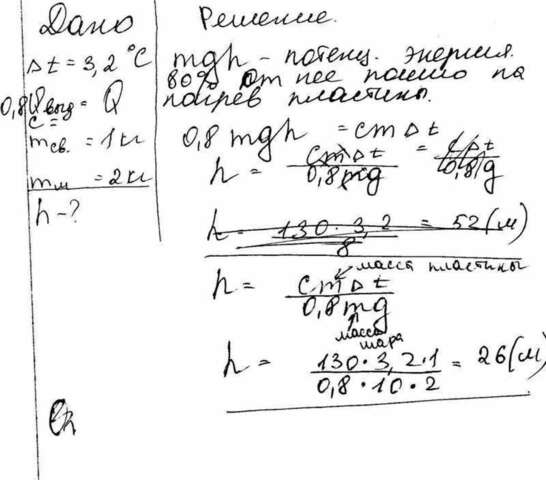 Дано
Δt = 3,2 °C
0,8Qвыд = Q
c =
mсв. = 1 кг
mм = 2 кг
h - ?
Решение.
mgh - потенц. энергия.
80% от нее пошло на
нагрев пластины.
0,8 mgh = cmΔt
h = cmΔt / 0,8mg = cΔt / 0,8g
h = 130 · 3,2 / 8 = 52 (м)
h = cmΔt / 0,8mg
масса пластины
масса
шара
h = 130 · 3,2 · 1 / 0,8 · 10 · 2 = 26 (м)